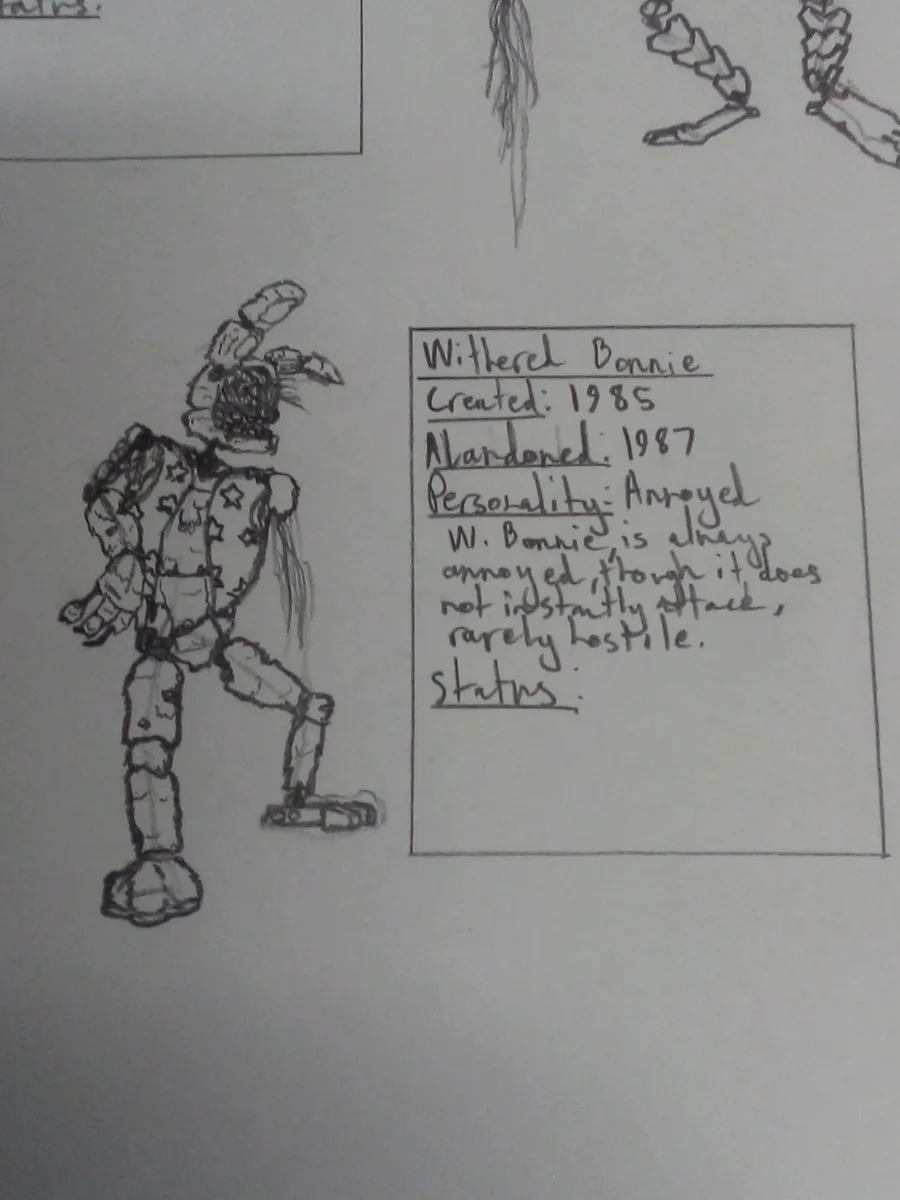 Status.
Withered Bonnie
Created: 1985
Abandoned: 1987
Personality: Annoyed
W. Bonnie is always
annoyed, though it does
not instantly attack,
rarely hostile.
Status: